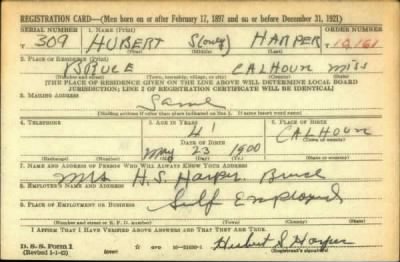 REGISTRATION CARD—(Men born on or after February 17, 1897 and on or before December 31, 1921)
SERIAL NUMBER 1. NAME (Print) ORDER NUMBER
309 HUBERT S(only) HARPER 10,161
(First) (Middle) (Last)
2. PLACE OF RESIDENCE (Print)
BRUCE CALHOUN MISS
(Number and street) (Town, township, village, or city) (County) (State)
[THE PLACE OF RESIDENCE GIVEN ON THE LINE ABOVE WILL DETERMINE LOCAL BOARD
JURISDICTION; LINE 2 OF REGISTRATION CERTIFICATE WILL BE IDENTICAL]
3. MAILING ADDRESS
Same
(Mailing address if other than place indicated on line 2. If same insert word same)
4. TELEPHONE 5. AGE IN YEARS 6. PLACE OF BIRTH
41 CALHOUN
DATE OF BIRTH (Town or county)
May 23 1900
(Exchange) (Number) (Mo.) (Day) (Yr.) (State or country)
7. NAME AND ADDRESS OF PERSON WHO WILL ALWAYS KNOW YOUR ADDRESS
Mrs H. S. Harper. Bruce
8. EMPLOYER'S NAME AND ADDRESS
Self Employed
9. PLACE OF EMPLOYMENT OR BUSINESS
(Number and street or R. F. D. number) (Town) (County) (State)
I AFFIRM THAT I HAVE VERIFIED ABOVE ANSWERS AND THAT THEY ARE TRUE.
Hubert S Harper
D. S. S. Form 1 (Registrant's signature)
(Revised 1-1-42)